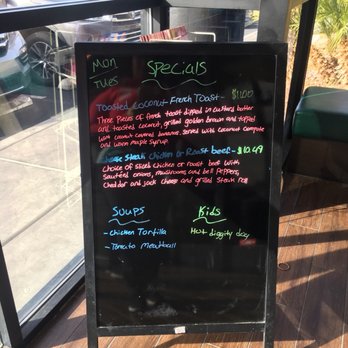 Mon
Tues
Specials
Toasted Coconut French Toast - $11.00
Three pieces of french toast dipped in custard batter
and toasted coconut, grilled golden brown and topped
with coconut covered bananas. Served with coconut compote
and warm maple syrup
Cheese Steak chicken or Roast beef - $10.49
Choice of sliced chicken or roast beef with
Sautéed onions, mushrooms and bell peppers,
Cheddar and jack cheese and grilled Steak roll
Soups
- Chicken Tortilla
- Tomato Meatball
Kids
Hot diggity dog